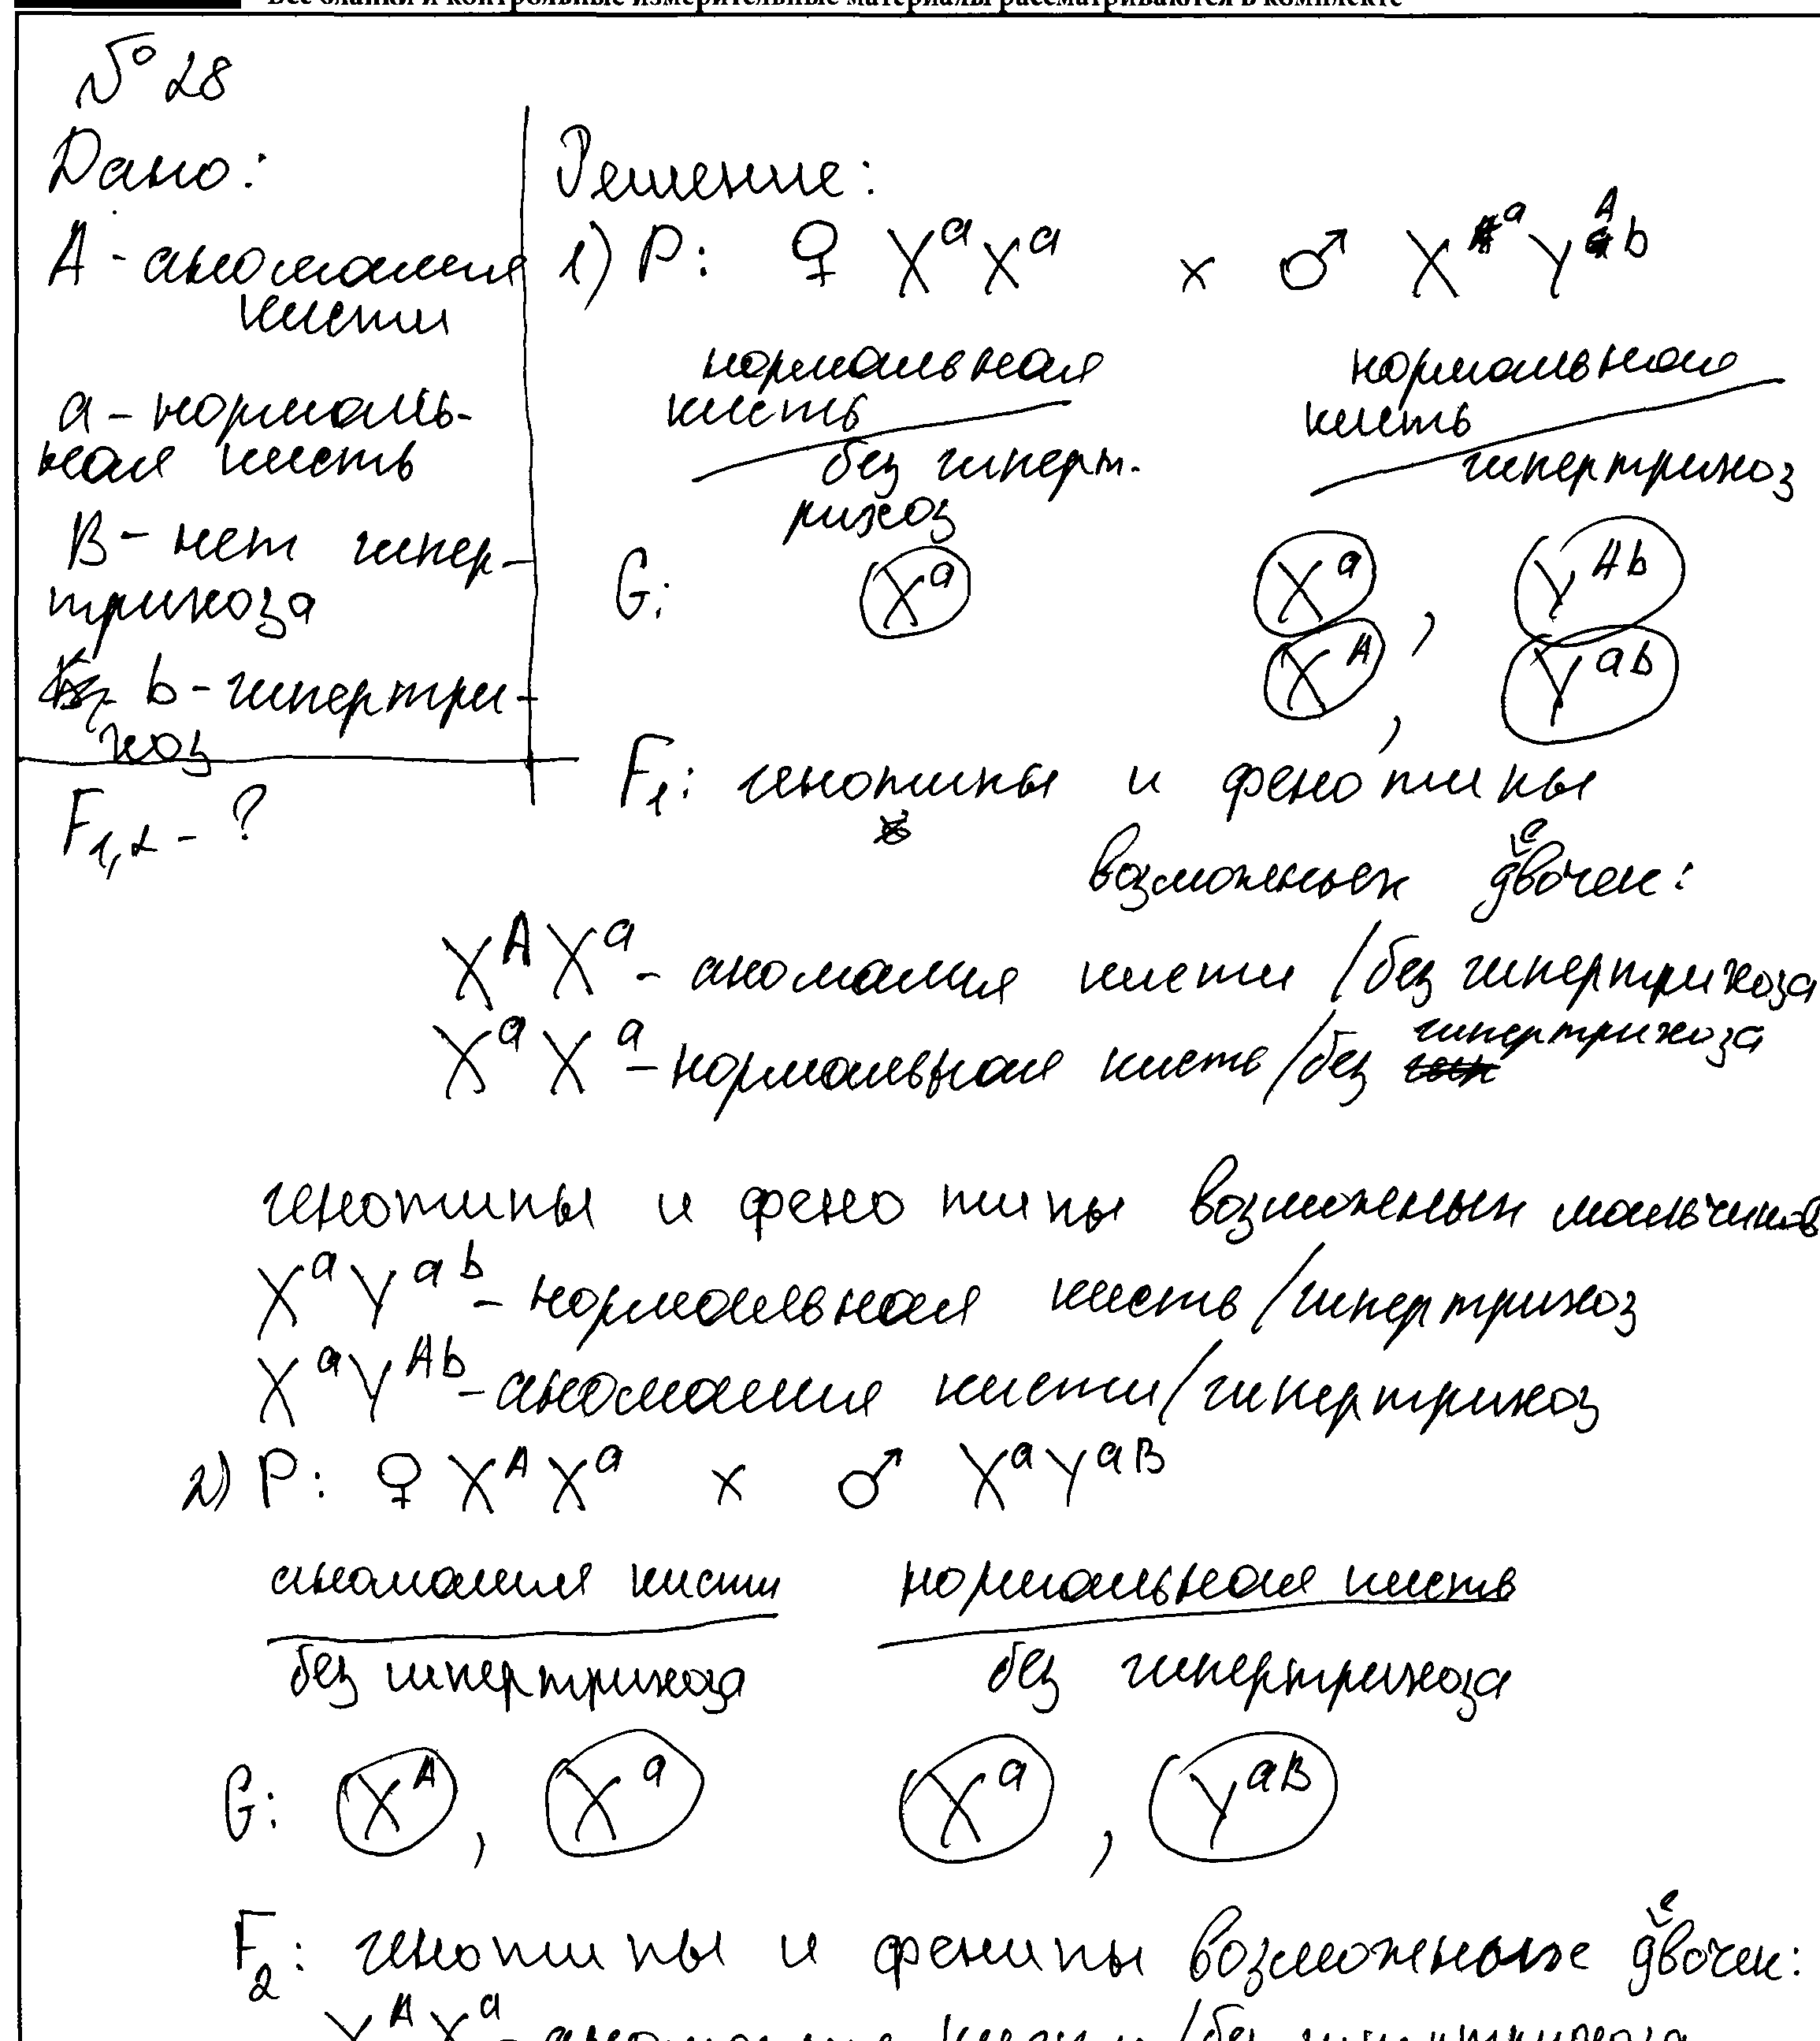 Все бланки и контрольные измерительные материалы рассматриваются в комплекте
№ 28
Дано:
A - аномалия
кисти
a - нормаль-
ная кисть
B - нет гипер-
трихоза
b - гипертри-
хоз
F1,2 - ?
Решение:
1) P: ♀ XᵃXᵃ x ♂ XᵃYᴬᵇ
нормальная нормальная
кисть кисть
без гиперт- гипертрихоз
рихоз
G: Xᵃ Xᵃ, Yᴬᵇ
Xᴬ, Yᵃᵇ
F1: генотипы и фенотипы
возможных девочек:
XᴬXᵃ - аномалия кисти / без гипертрихоза
XᵃXᵃ - нормальная кисть / без гипертрихоза
генотипы и фенотипы возможных мальчиков
XᵃYᵃᵇ - нормальная кисть / гипертрихоз
XᵃYᴬᵇ - аномалия кисти / гипертрихоз
2) P: ♀ XᴬXᵃ x ♂ XᵃYᵃᴮ
аномалия кисти нормальная кисть
без гипертрихоза без гипертрихоза
G: Xᴬ, Xᵃ Xᵃ, Yᵃᴮ
F2: генотипы и фенипы возможных девочек:
XᴬXᵃ - аномалия кисти / без гипертрихоза